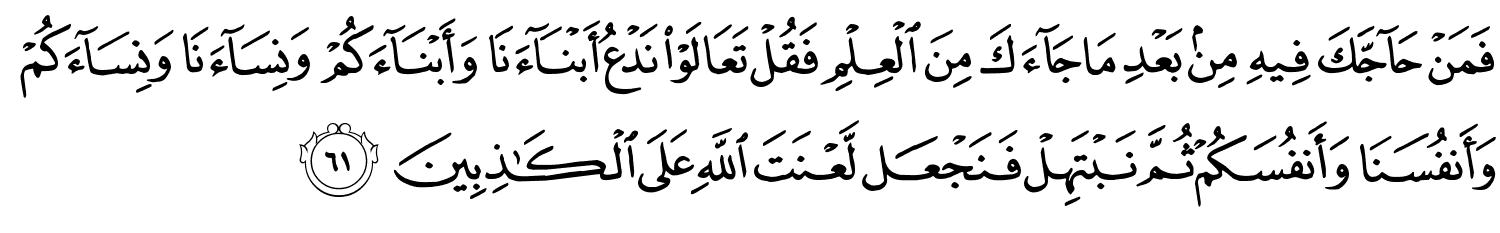 فَمَنْ حَآجَّكَ فِيهِ مِنۢ بَعْدِ مَا جَآءَكَ مِنَ ٱلْعِلْمِ فَقُلْ تَعَالَوْا۟ نَدْعُ أَبْنَآءَنَا وَأَبْنَآءَكُمْ وَنِسَآءَنَا وَنِسَآءَكُمْ
وَأَنفُسَنَا وَأَنفُسَكُمْ ثُمَّ نَبْتَهِلْ فَنَجْعَل لَّعْنَتَ ٱللَّهِ عَلَى ٱلْكَـٰذِبِينَ ٦١